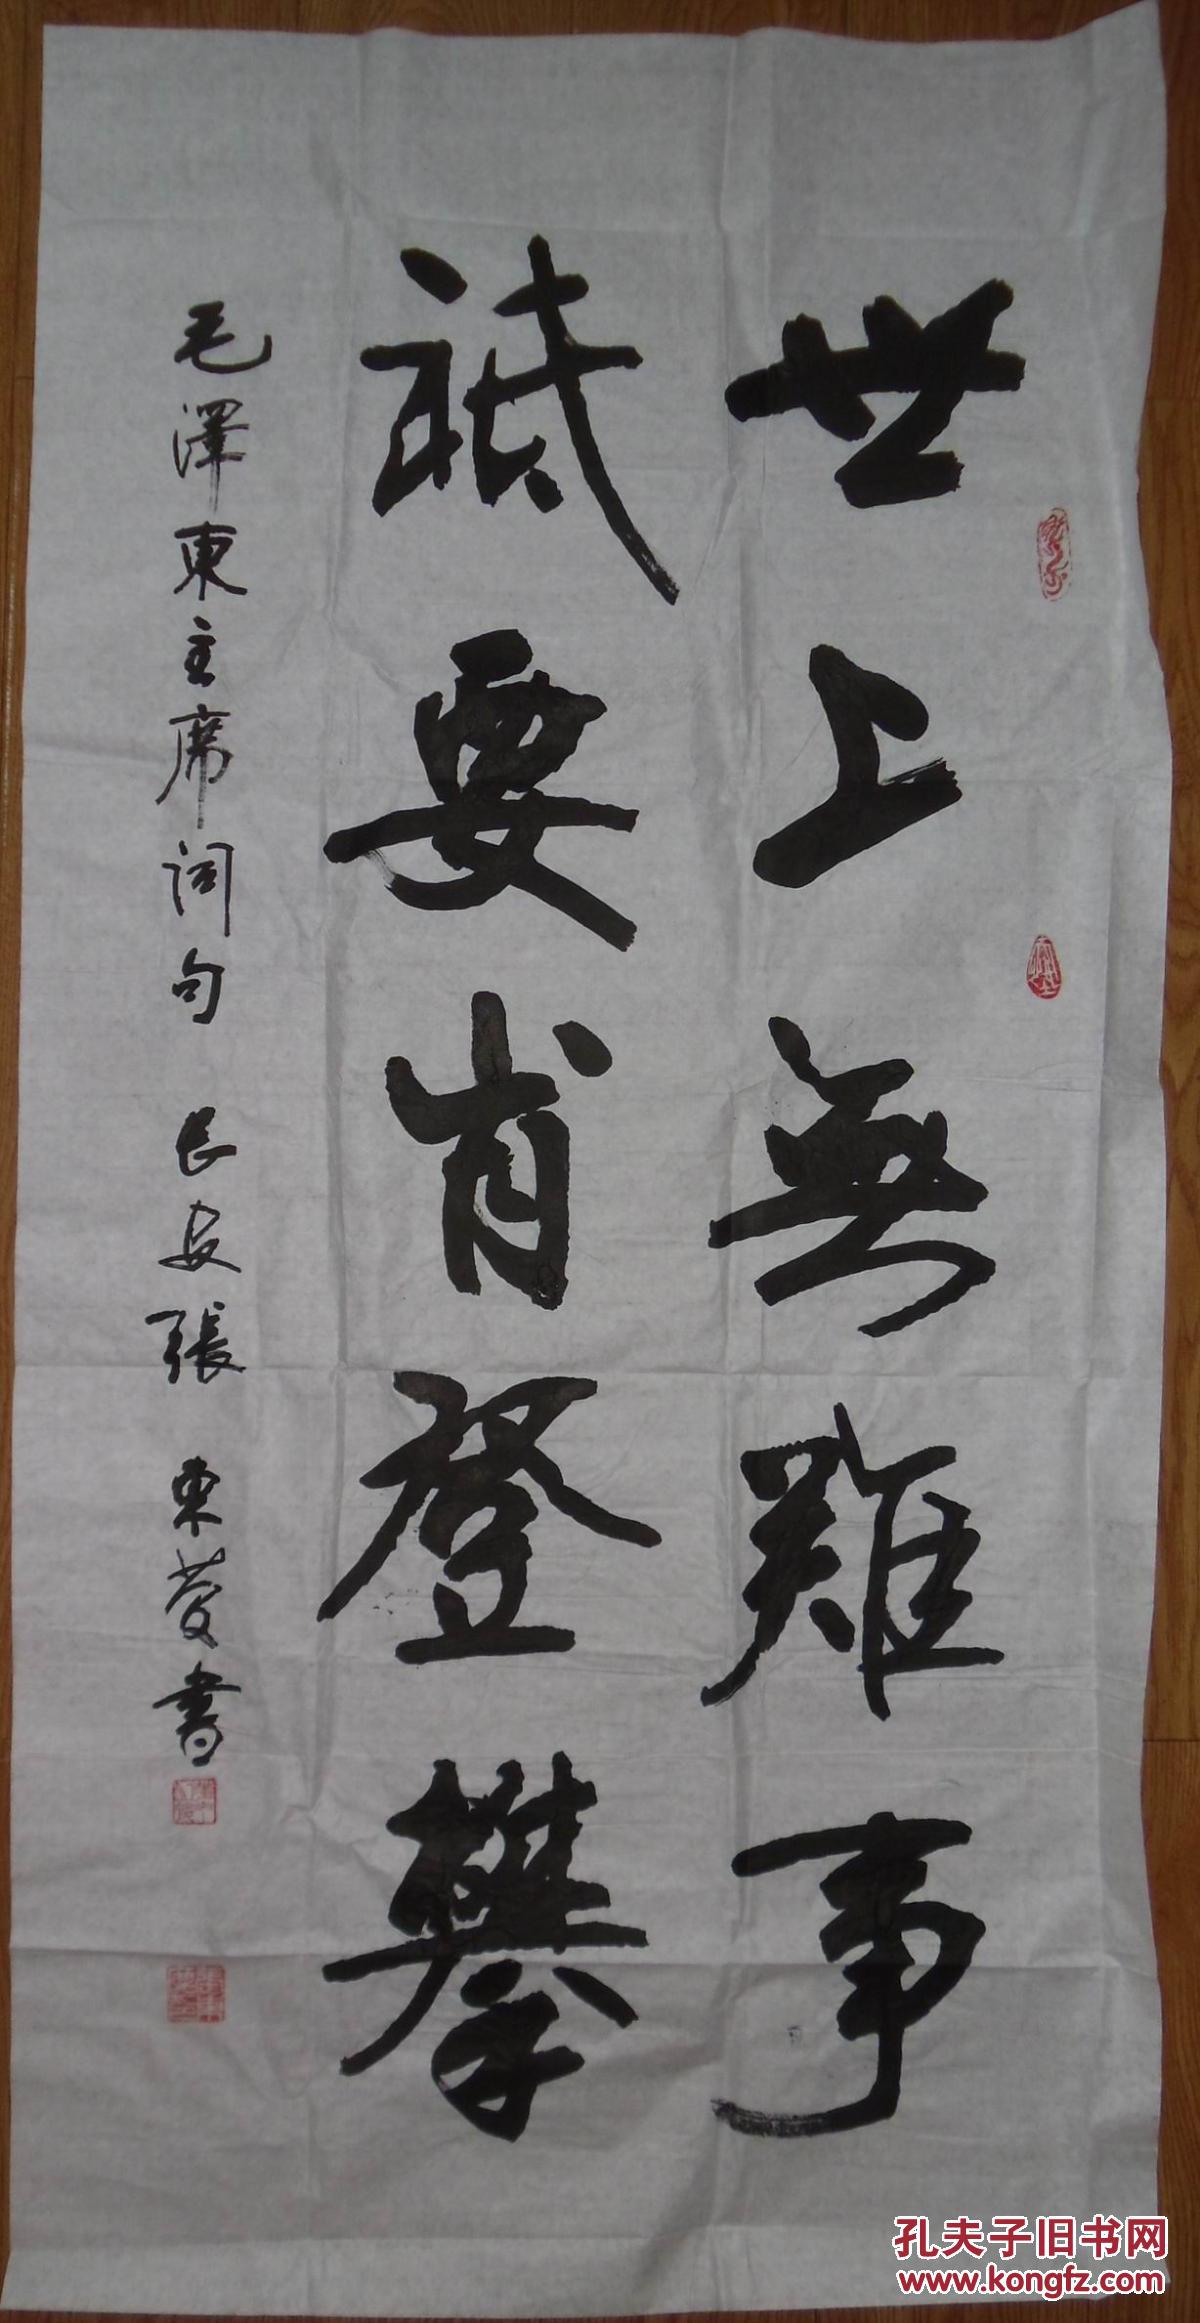 世上無難事
祗要肯登攀
毛澤東主席词句 長安張東菱書
孔夫子旧书网
www.kongfz.com